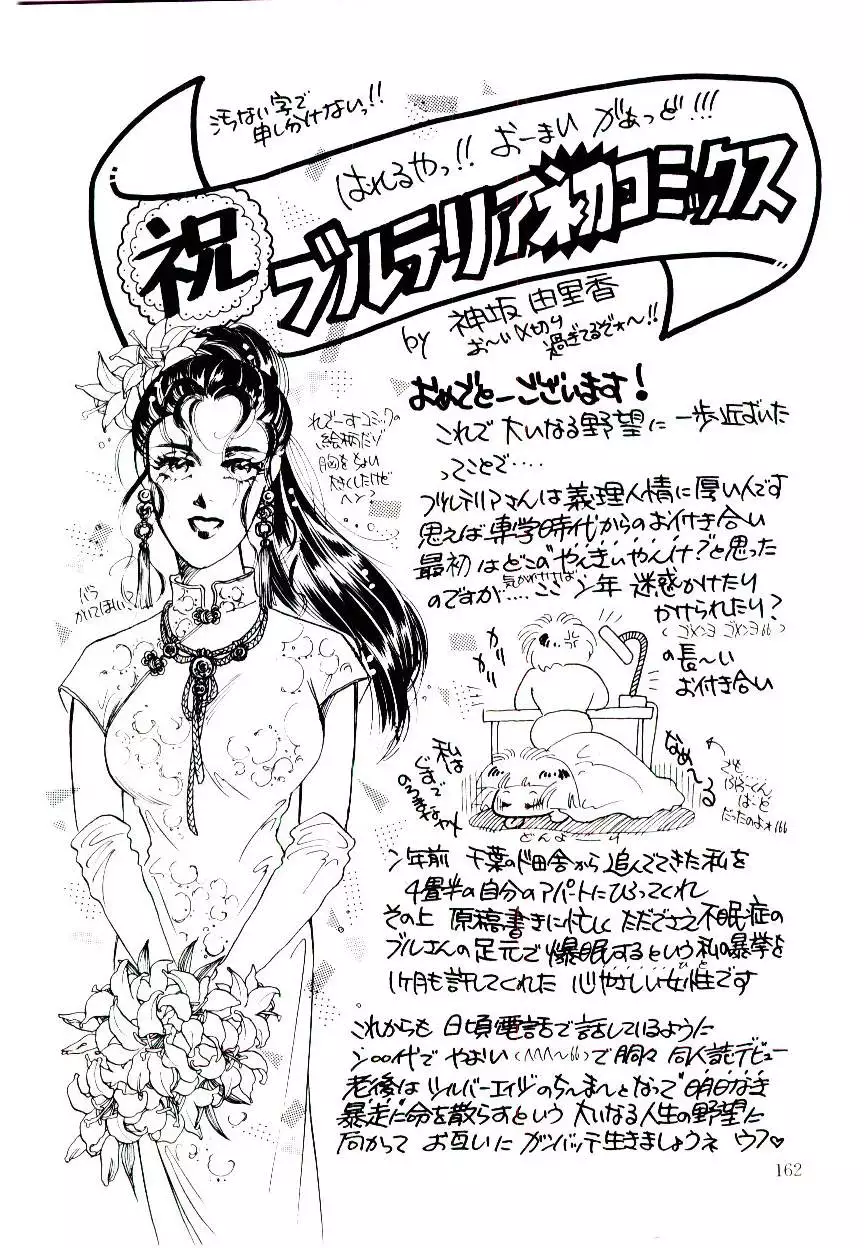 汚ない字で
申し分けないっ!!
はれるやっ!! おーまい がぁっど!!!
祝
ブルテリア初コミックス
by 神坂 由里香
お〜い〆切り
過ぎてるぞォ〜!!
おめでとーございます!
これで 大いなる野望に 一歩近ずいた
ってことで‥‥
れでーすコミックの
絵柄だゾ
胸をちょい
大きくしたけどサ
ヘン?
ブルテリアさんは 義理人情に 厚い人です
思えば 専学時代からのお付き合い
最初はどこの"やんきぃやんけ?"と思った
のですが‥‥ 気がつけば ここン年 迷惑かけたり
かけられたり?
(ゴメンヨ ゴメンヨ66)
の長〜い
お付き合い
バラ
かいてほしい?
ガリ
ガリ
私は
ぐずで
のろまなカメ
なめ〜る
どんよーーり
でも
ばーど
だったのよォ166
ン年前 千葉のド田舎から 追んでてきた私を
4畳半の自分のアパートにひろってくれ
その上 原稿書きに忙しく ただでさえ 不眠症の
ブルさんの足元で 爆眠するという 私の暴挙を
1ヶ月も許してくれた 心やさしい女性です
ひと
これからも 日頃電話で話しているように
ン〇〇代で やおい(へへへ〜66)で 同人誌デビュー
老後は シルバーエイジのちーまーとなって"明日なき
暴走"に命を散らすという 大いなる人生の野望に
向かって お互いに ガンバッテ生きましょうネ ウフ♡
162